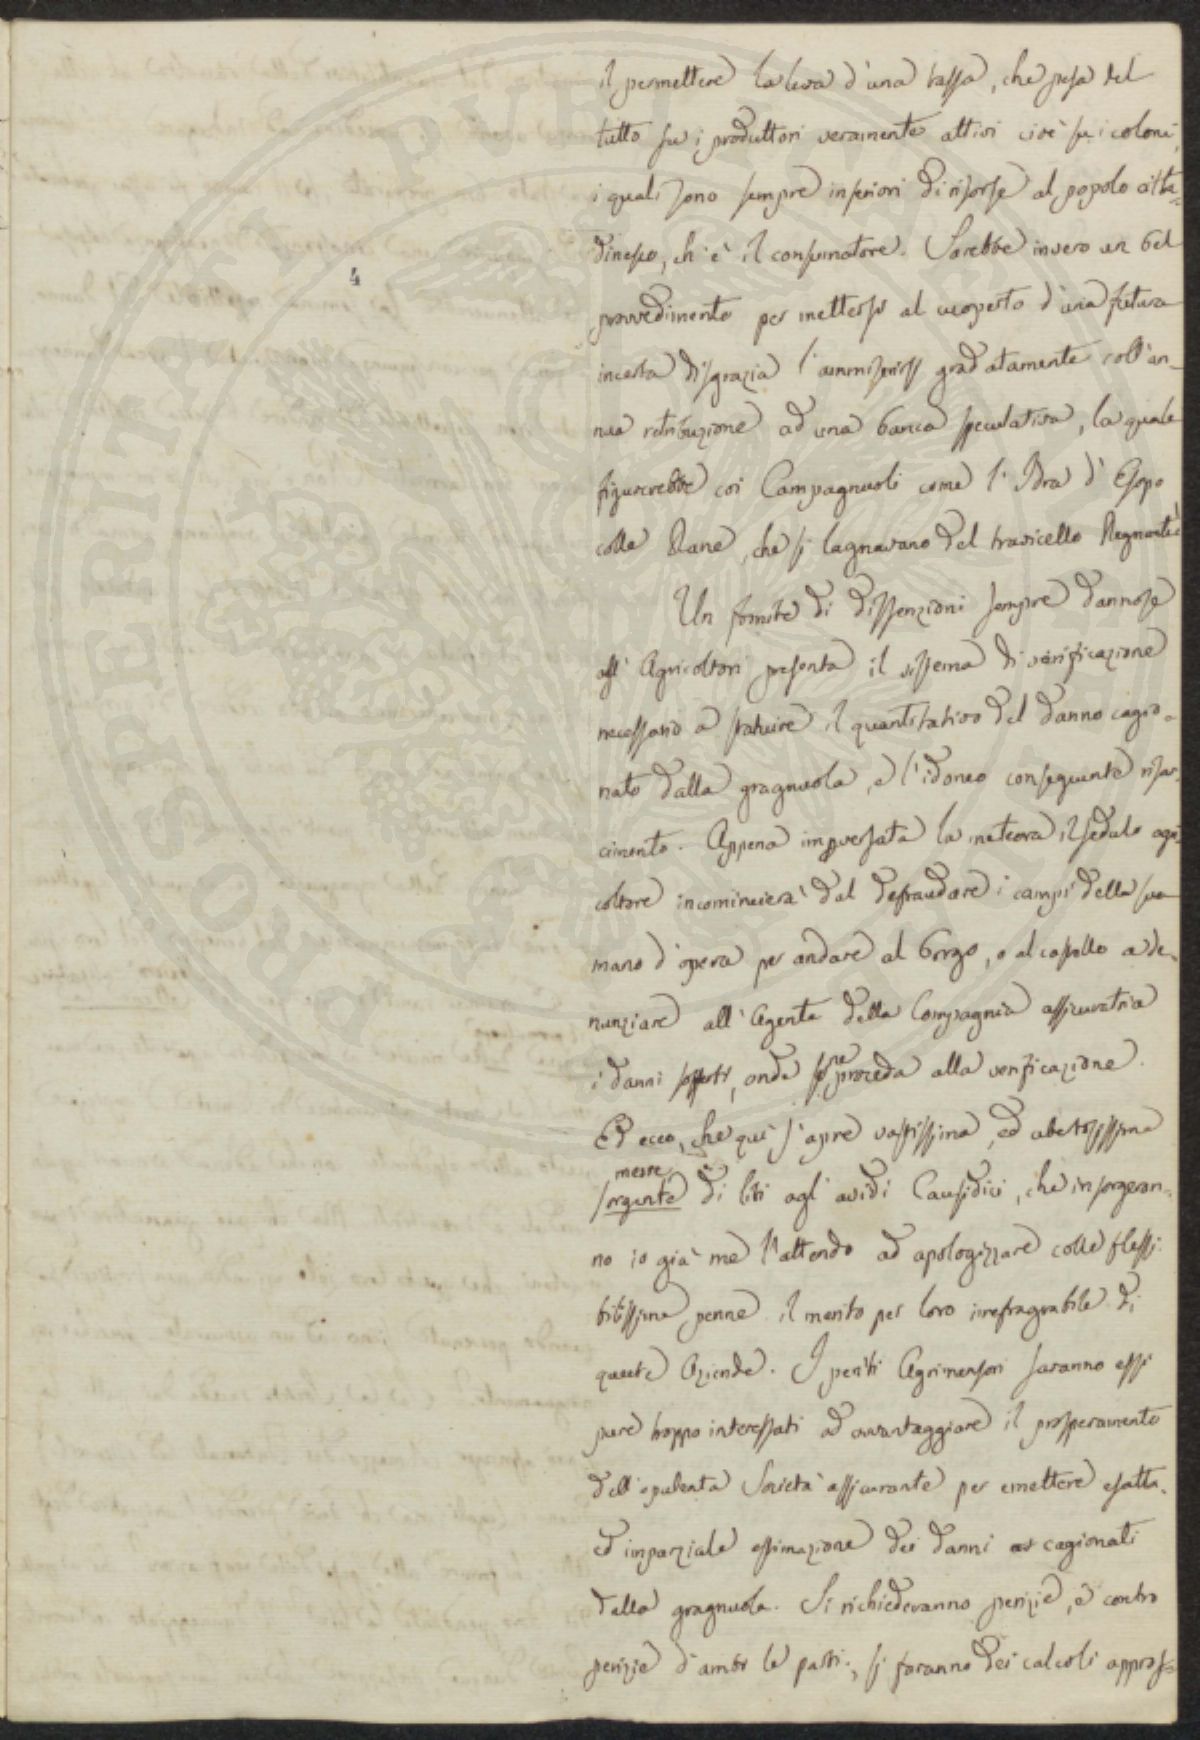 il permettere la leva d'una tassa, che pesa del
tutto su i produttori veramente attivi cioè su i coloni,
i quali sono sempre inferiori di risorse al popolo citta-
dinesco, ch'è il consumatore. Sarebbe invero un bel
provvedimento per mettersi al coperto d'una futura
incerta disgrazia l'ammiserirsi gradatamente coll'an-
nua retribuzione ad una banca speculativa, la quale
figurerebbe coi Campagnuoli come l'Idra d'Esopo
colle Rane, che si lagnavano del travicello Regnante.
Un fomite di dissenzioni sempre dannose
agl'Agricoltori presenta il sistema di verificazione
necessario a statuire il quantitativo del danno cagio-
nato dalla gragnuola, e l'idoneo conseguente risar-
cimento. Appena imperversata la meteora il sedulo agri-
coltore incomincierà dal defraudare i campi della sua
mano d'opera per andare al Borgo, o al castello a de-
nunziare all'Agente della Compagnia assicuratria
i danni sofferti, onde se ne proceda alla verificazione.
Ed ecco, che quì s'apre vastissima, ed ubertosissima
messe
sorgente di liti agl'avidi Causidici, che insorgeran-
no io già me l'attendo ad apologizzare colle flessi-
bilissime penne il merito per loro irrefragabile di
queste Aziende. I periti Agrimensori saranno essi
pure troppo interessati ad avvantaggiare il prosperamento
dell'opulenta Società assicurante per emettere esatta,
ed imparziale estimazione dei danni cagionati
dalla gragnuola. Si richiederanno perizie, e contro
perizie d'ambi le parti, si faranno dei calcoli appros-
4